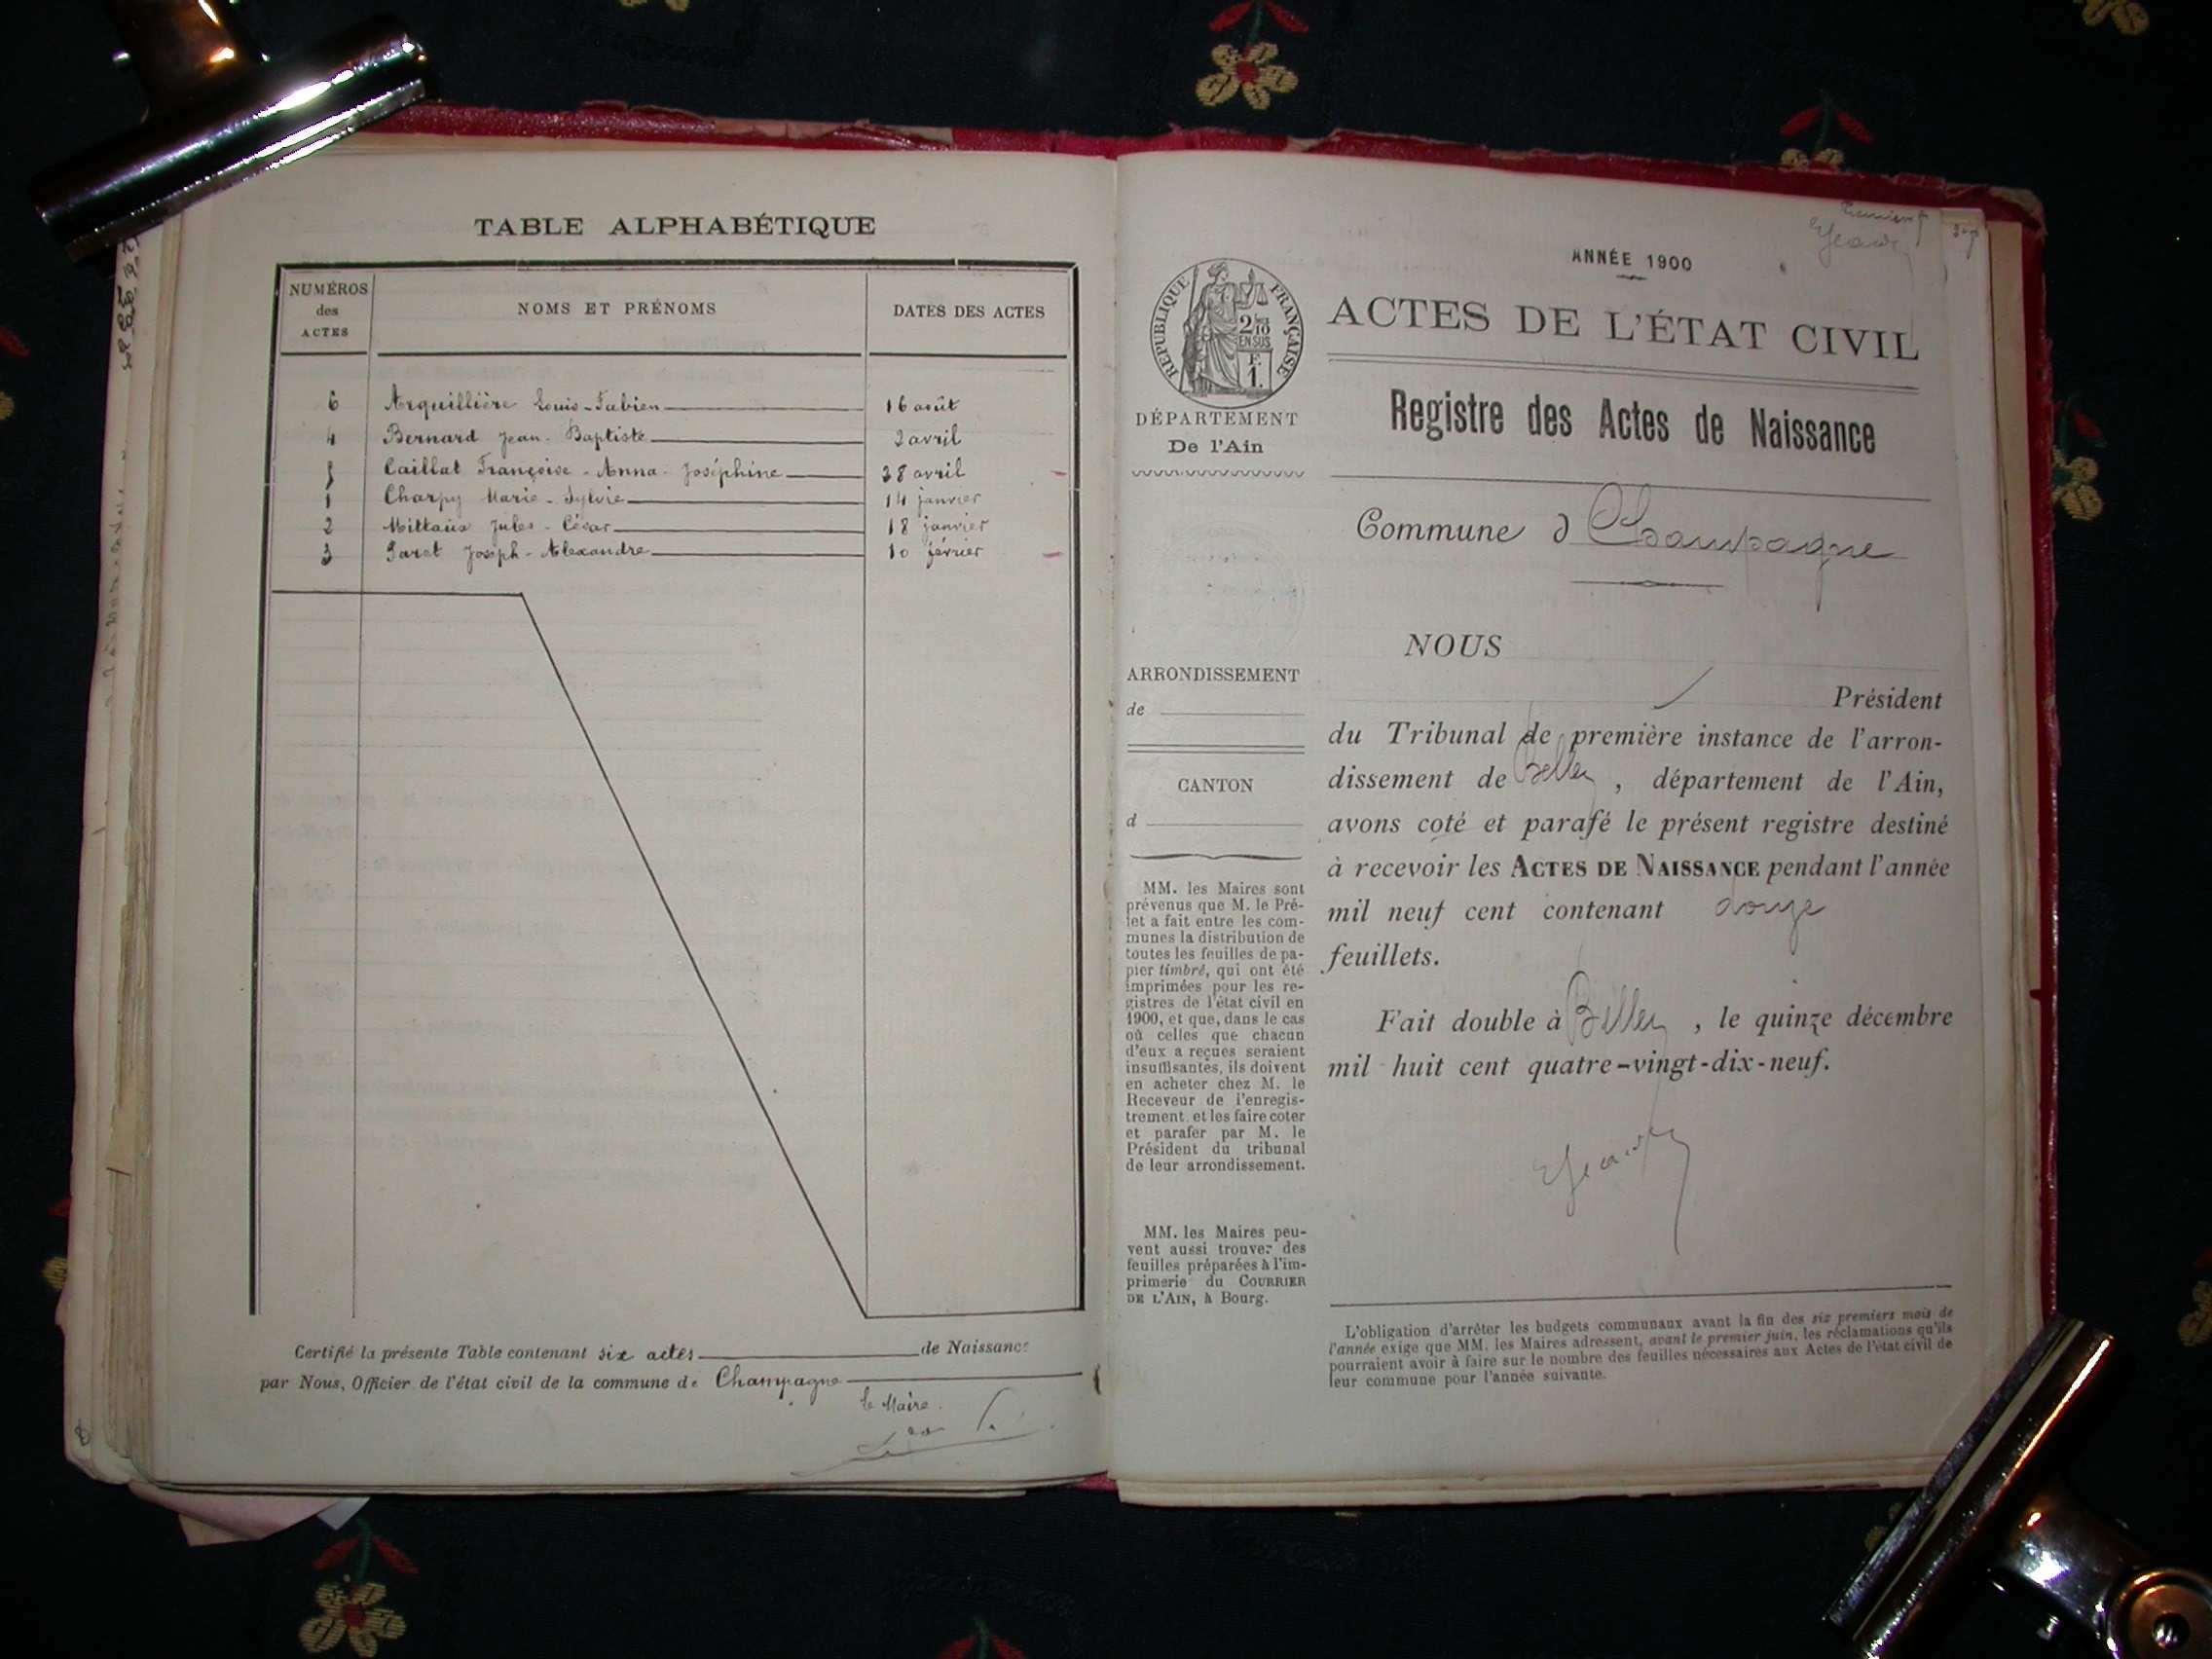 TABLE ALPHABÉTIQUE
NUMÉROS
des
ACTES
NOMS ET PRÉNOMS
DATES DES ACTES
6 Arquillière Louis-Fabien 16 août
4 Bernard Jean-Baptiste 2 avril
5 Caillat Françoise-Anna-Joséphine 28 avril
1 Charpy Marie-Sylvie 14 janvier
2 Jules-César 18 janvier
3 Joseph-Alexandre 10 février
Certifié la présente Table contenant six actes de Naissance
par Nous, Officier de l'état civil de la commune de Champagne
le Maire.
ANNÉE 1900
ACTES DE L'ÉTAT CIVIL
RÉPUBLIQUE FRANÇAISE
2/10
EN SUS
F.
1.
DÉPARTEMENT
De l'Ain
Registre des Actes de Naissance
Commune d Champagne
ARRONDISSEMENT
de
CANTON
d
MM. les Maires sont
prévenus que M. le Pré-
fet a fait entre les com-
munes la distribution de
toutes les feuilles de pa-
pier timbré, qui ont été
imprimées pour les re-
gistres de l'état civil en
1900, et que, dans le cas
où celles que chacun
d'eux a reçues seraient
insuffisantes, ils doivent
en acheter chez M. le
Receveur de l'enregis-
trement et les faire coter
et parafer par M. le
Président du tribunal
de leur arrondissement.
MM. les Maires peu-
vent aussi trouver des
feuilles préparées à l'im-
primerie du COURRIER
DE L'AIN, à Bourg.
NOUS
Président
du Tribunal de première instance de l'arron-
dissement de Belley, département de l'Ain,
avons coté et parafé le présent registre destiné
à recevoir les ACTES DE NAISSANCE pendant l'année
mil neuf cent contenant douze
feuillets.
Fait double à Belley, le quinze décembre
mil huit cent quatre-vingt-dix-neuf.
L'obligation d'arrêter les budgets communaux avant la fin des six premiers mois de
l'année exige que MM. les Maires adressent, avant le premier juin, les réclamations qu'ils
pourraient avoir à faire sur le nombre des feuilles nécessaires aux Actes de l'état civil de
leur commune pour l'année suivante.